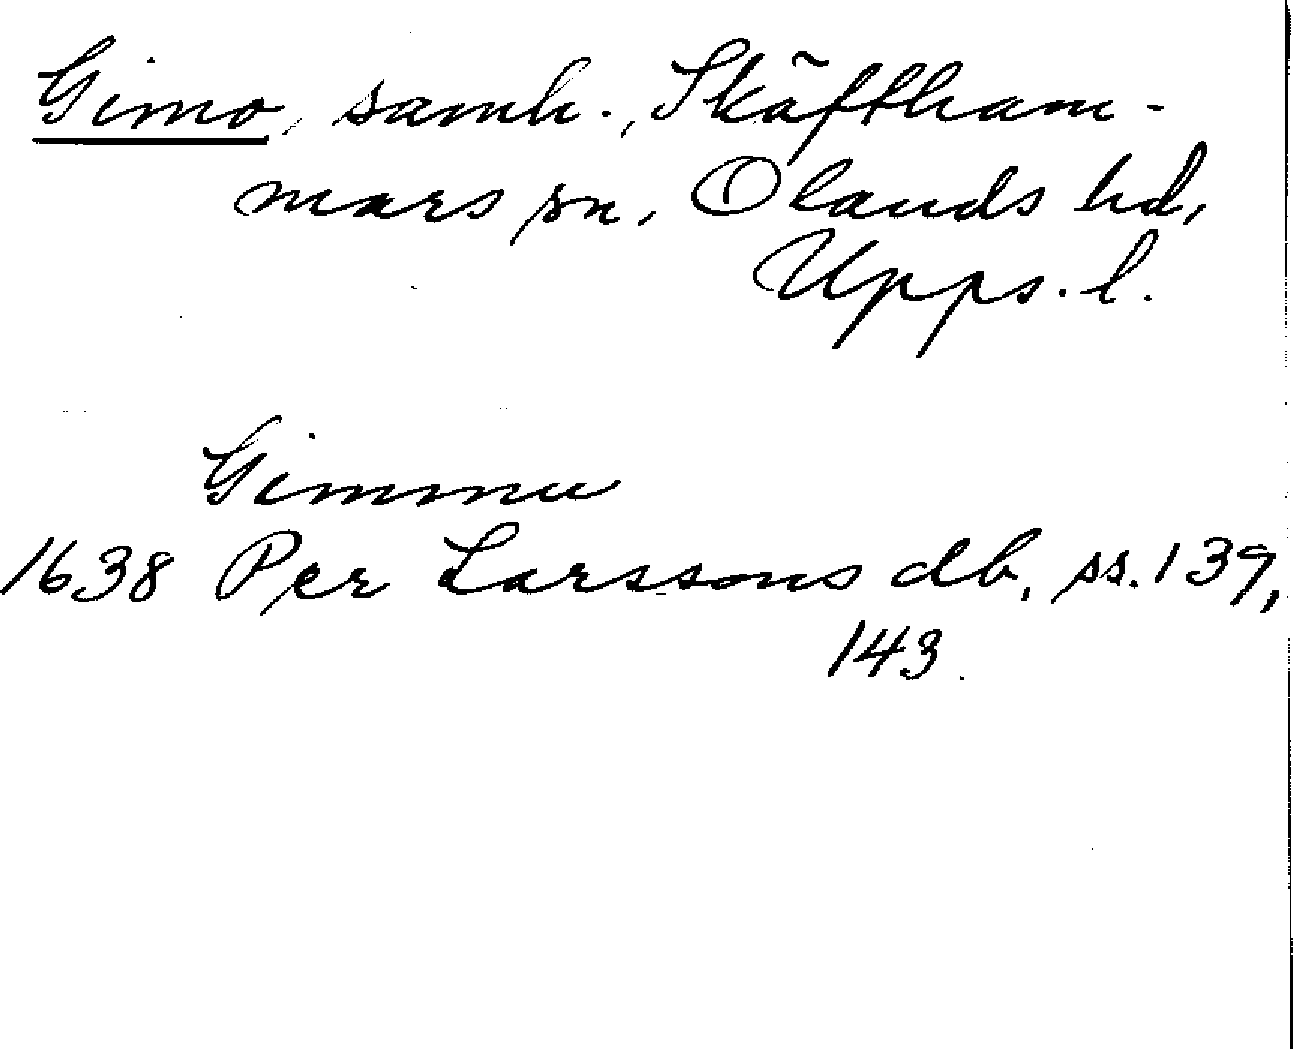 Gimo, samh., Skäftham-
mars sn, Olands hd,
Upps. l.
Gimmu
1638 Per Larssons db, ss. 139,
143.